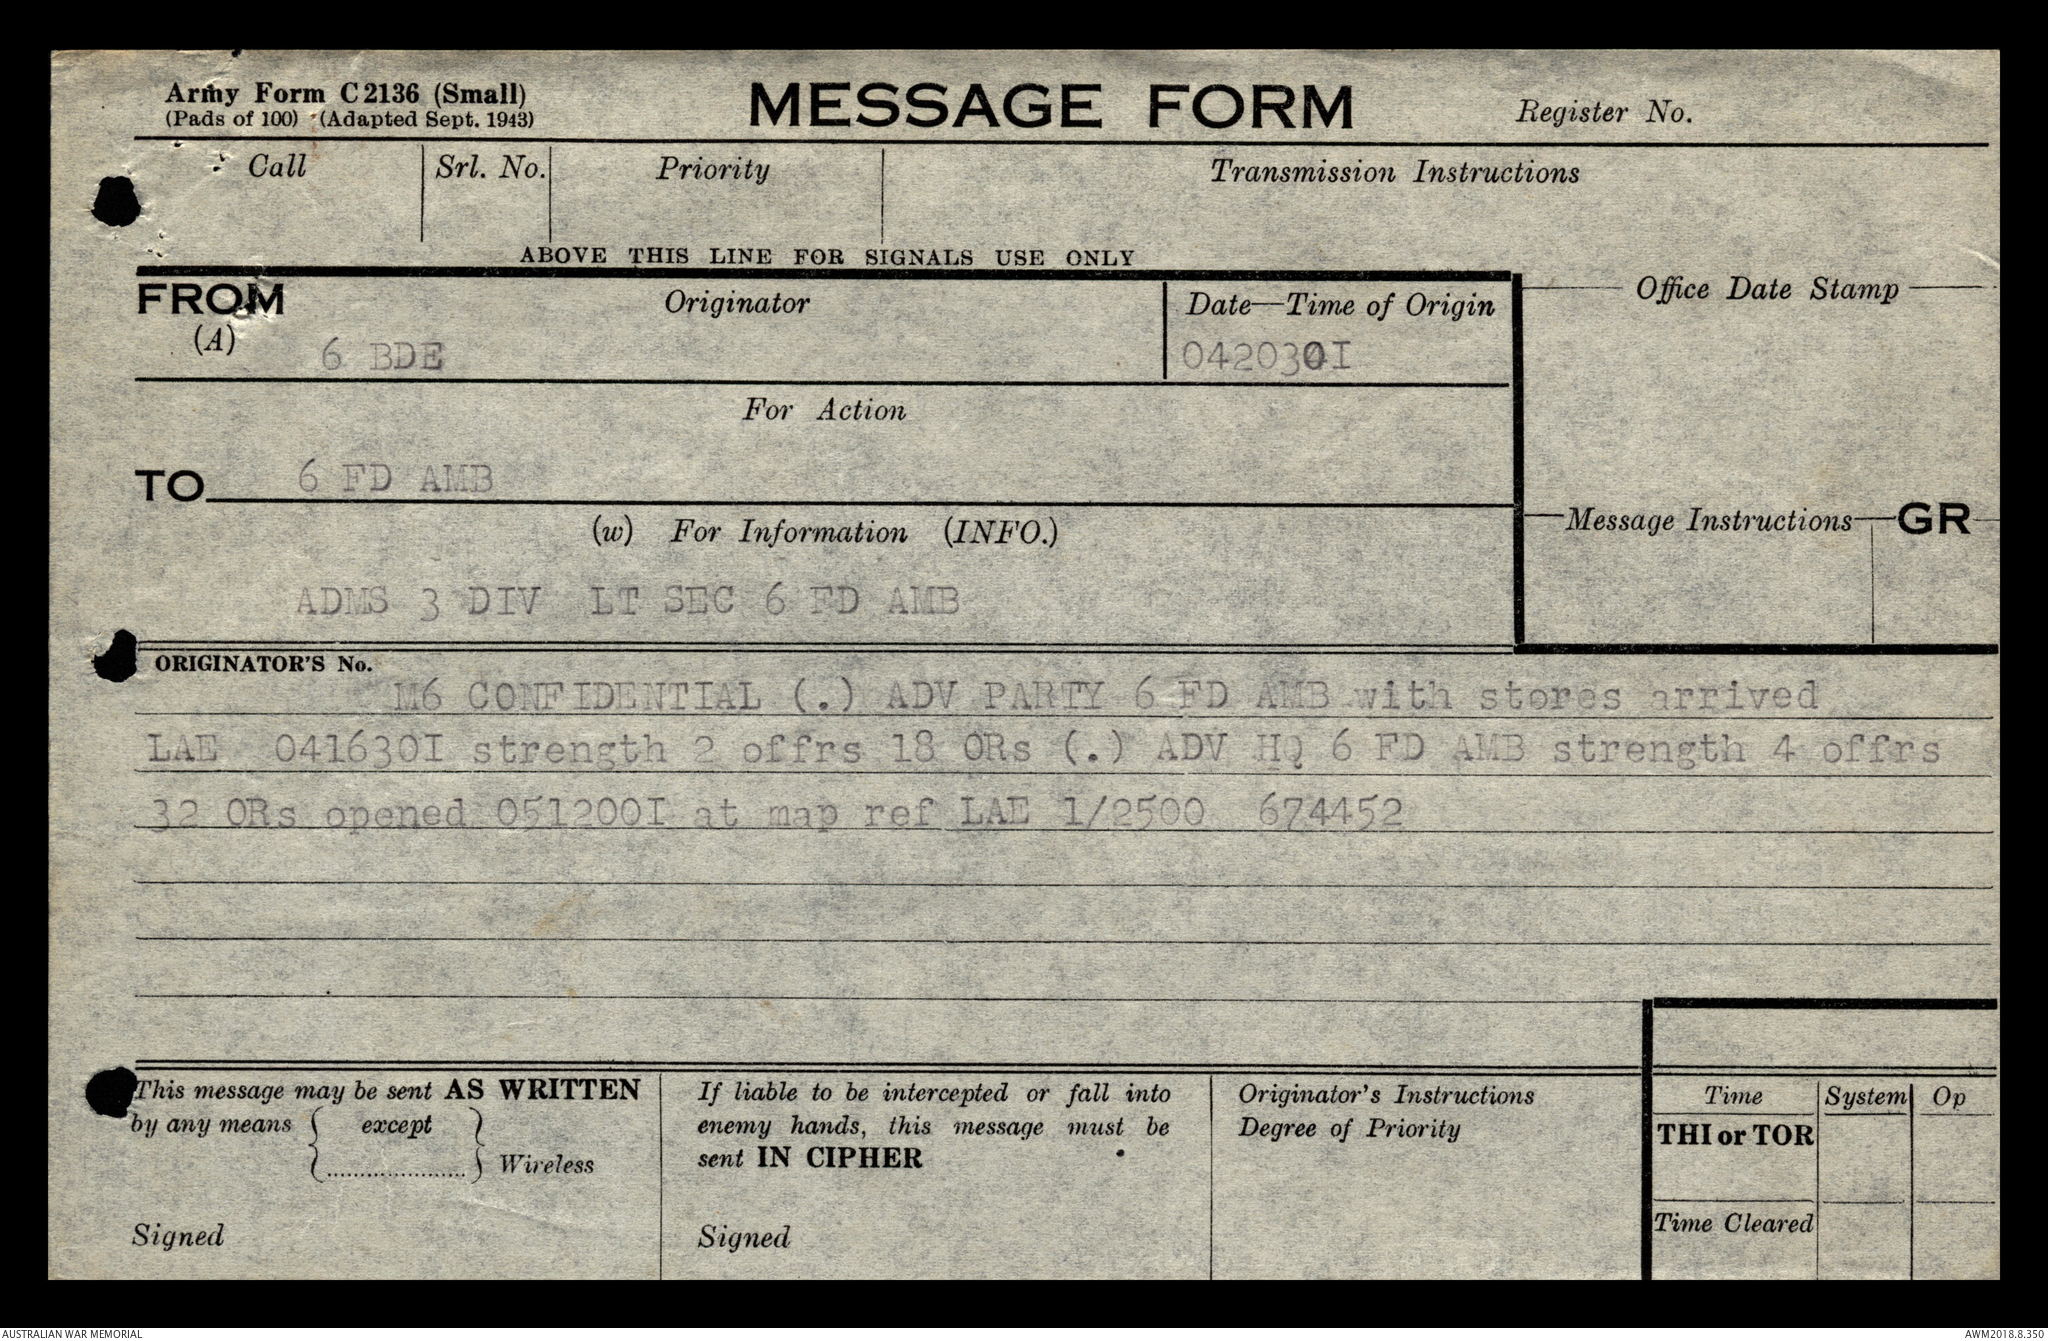 Army Form C2136 (Small)
(Pads of 100) (Adapted Sept. 1943)
MESSAGE FORM
Register No.
Call
Srl. No.
Priority
Transmission Instructions
ABOVE THIS LINE FOR SIGNALS USE ONLY
FROM
(A)
Originator
6 BDE
Date—Time of Origin
042030I
Office Date Stamp
For Action
TO
6 FD AMB
(w) For Information (INFO.)
ADMS 3 DIV LT SEC 6 FD AMB
Message Instructions
GR
ORIGINATOR'S No.
M6 CONFIDENTIAL (.) ADV PARTY 6 FD AMB with stores arrived
LAE 041630I strength 2 offrs 18 ORs (.) ADV HQ 6 FD AMB strength 4 offrs
32 ORs opened 051200I at map ref LAE 1/2500 674452
This message may be sent AS WRITTEN
by any means { except }
{......................} Wireless
Signed
If liable to be intercepted or fall into
enemy hands, this message must be
sent IN CIPHER
Signed
Originator's Instructions
Degree of Priority
Time
System
Op
THI or TOR
Time Cleared
AUSTRALIAN WAR MEMORIAL
AWM2018.8.350